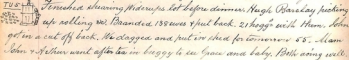 TUES
Finished shearing, Widerups lot before dinner. Hugh Barclay picking
up rolling etc. Branded 138 ewes & put back. 21 hoggts with them. John
got in a cut off back. We dagged and put in shed for tomorrow 55. Mam
John & Arthur went after tea in buggy to see Grace and baby. Both doing well.